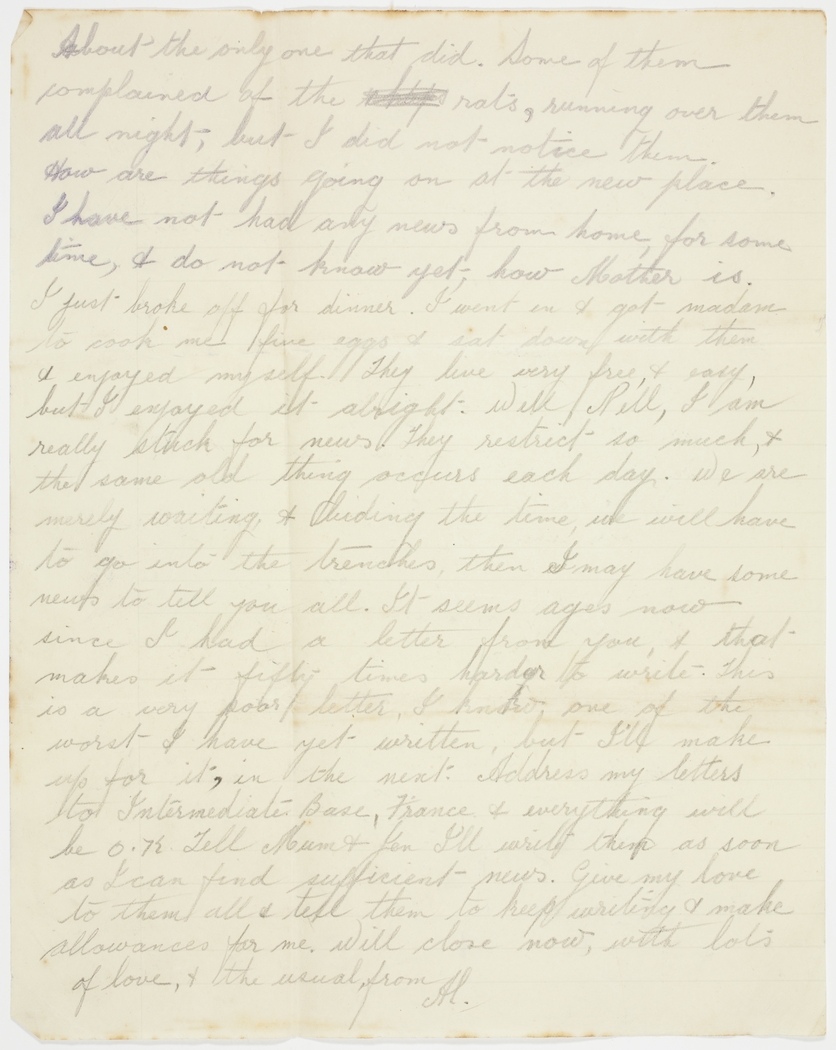 About the only one that did. Some of them
complained of the rats, running over them
all night, but I did not notice them.
How are things going on at the new place.
I have not had any news from home, for some
time, & do not know yet, how Mother is.
I just broke off for dinner. I went in & got madam
to cook me five eggs & sat down with them
& enjoyed myself. They live very free, & easy,
but I enjoyed it alright. Well Nell, I am
really stuck for news. They restrict so much, &
the same old thing occurs each day. We are
merely waiting, & biding the time, we will have
to go into the trenches, then I may have some
news to tell you all. It seems ages now
since I had a letter from you, & that
makes it fifty times harder to write. This
is a very poor letter, I know, one of the
worst I have yet written, but I'll make
up for it, in the next. Address my letters
to Intermediate Base, France & everything will
be O.K. Tell Mum & Jen I'll write them as soon
as I can find sufficient news. Give my love
to them all & tell them to keep writing & make
allowances for me. Will close now, with lots
of love, & the usual, from Al.